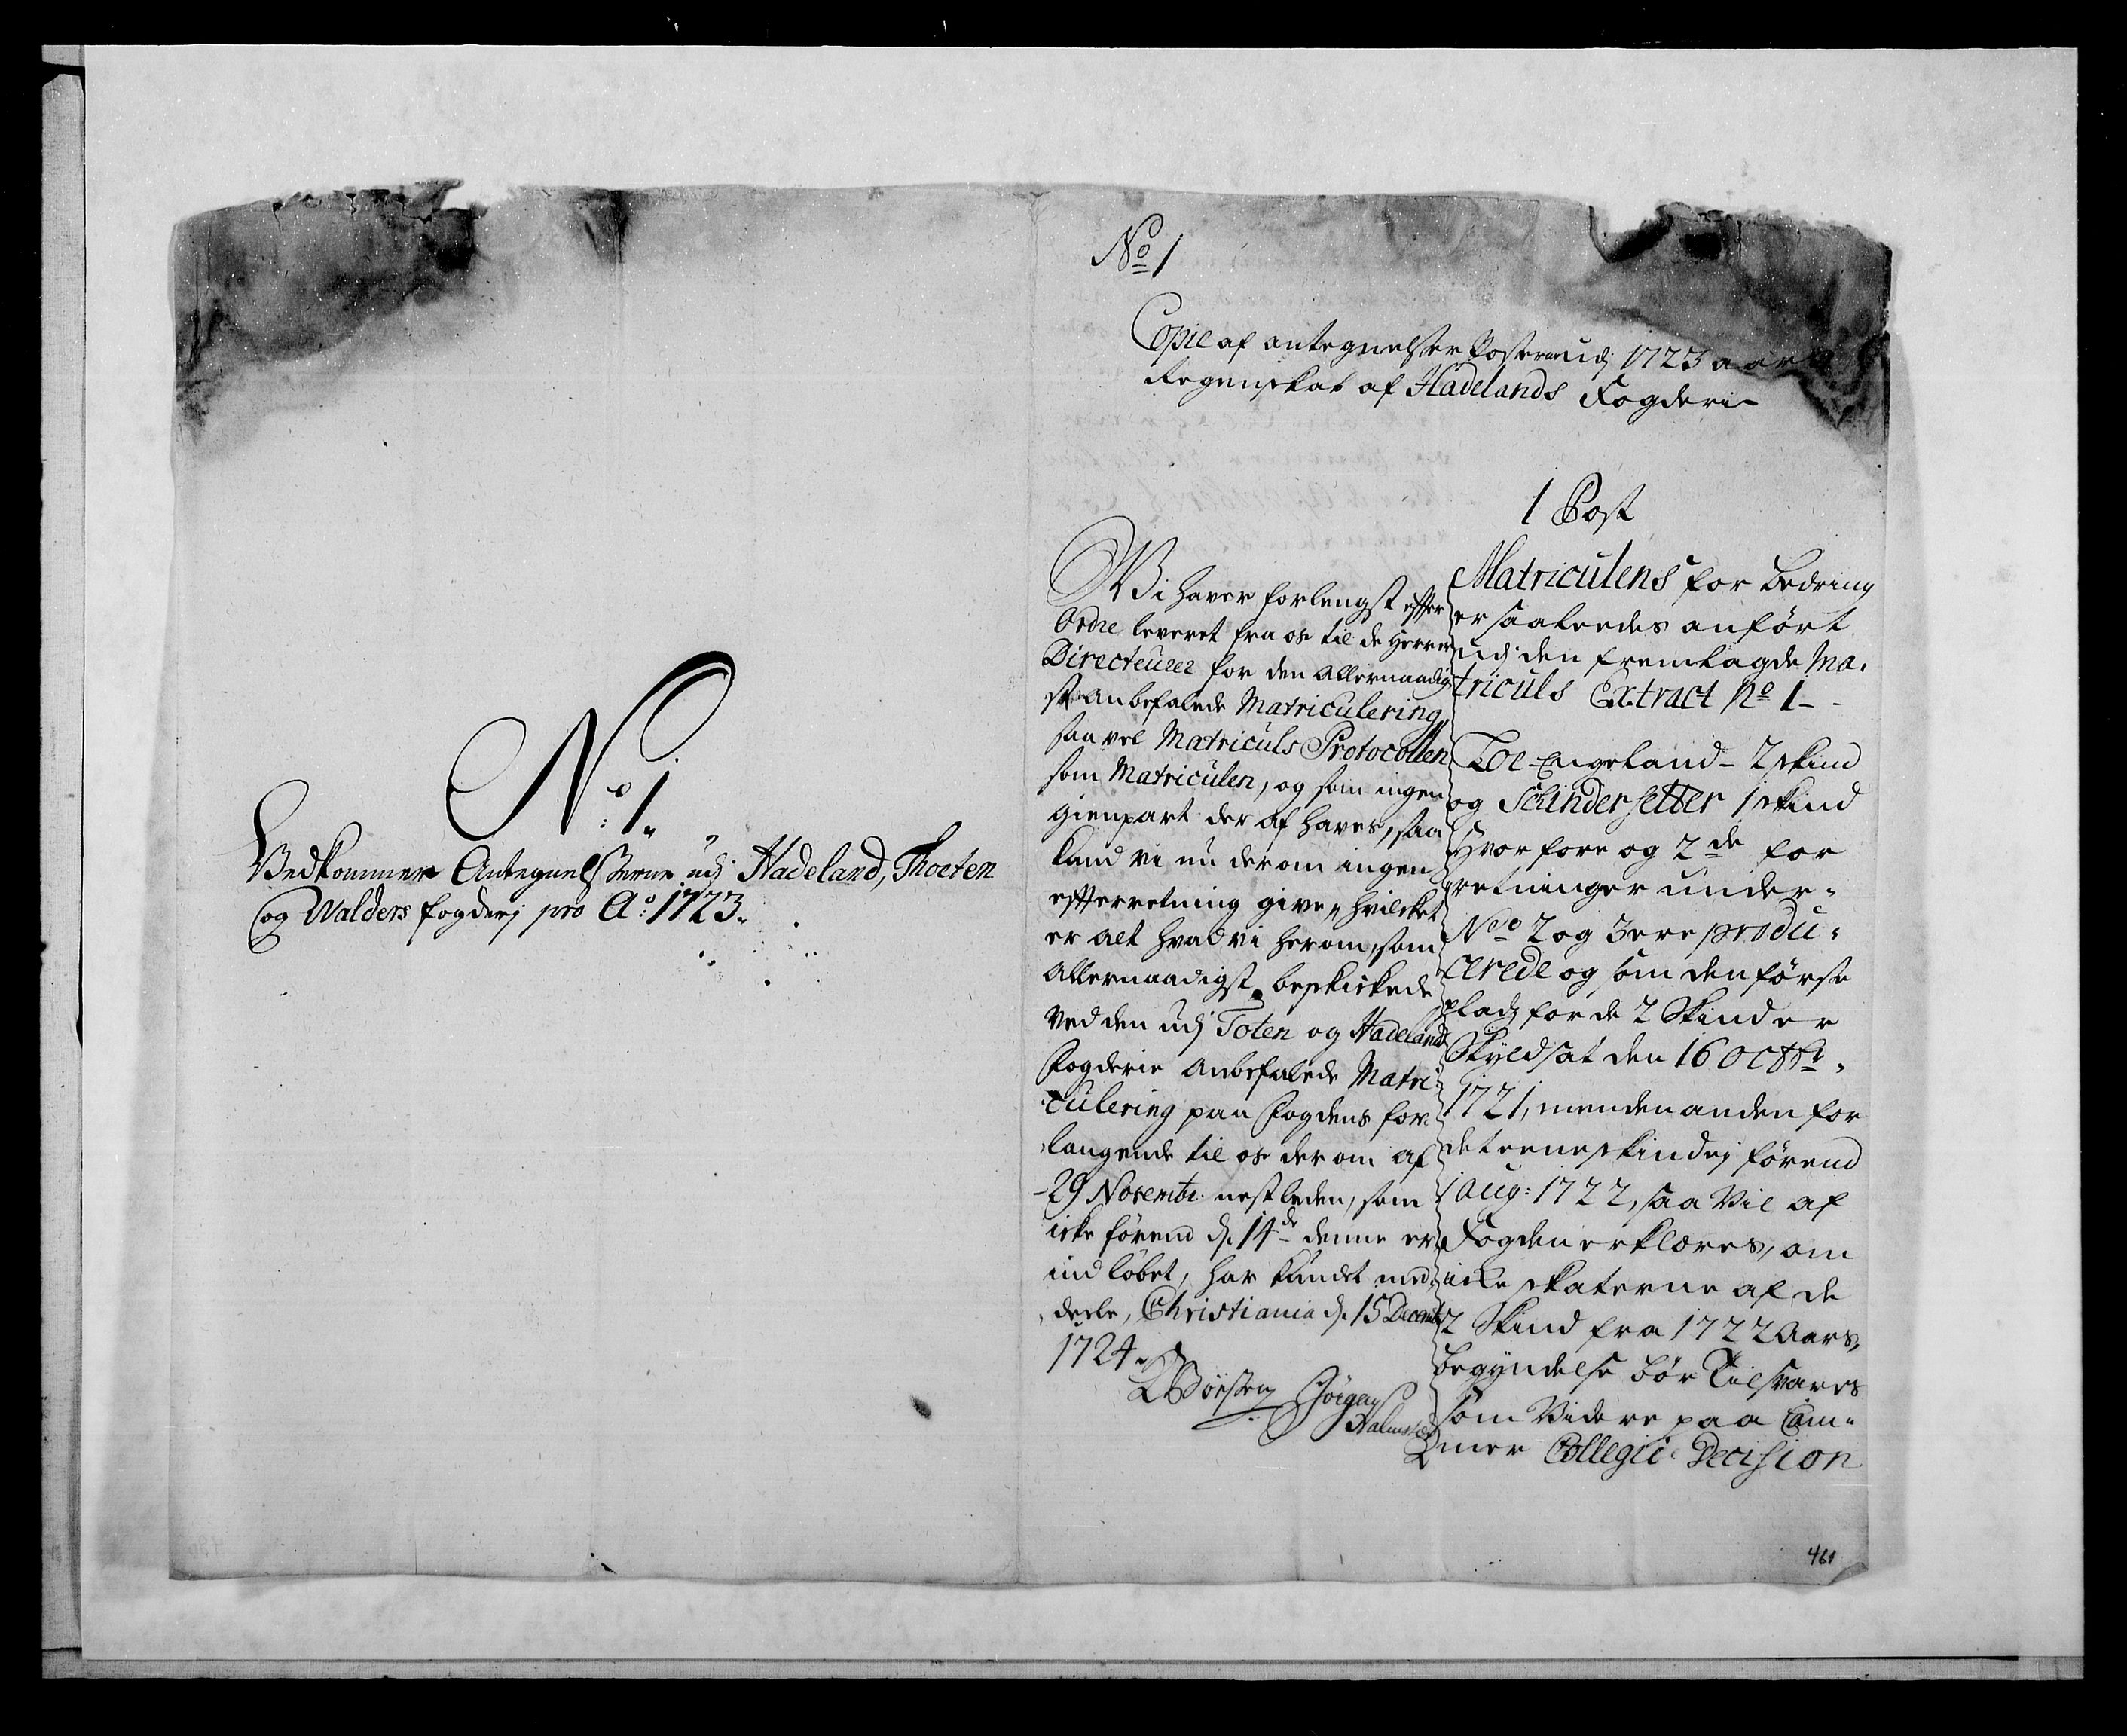 No 1.
Vedkommer Antegnelsserne udj Hadeland, Thoeten
og Walders fogderj pro Ao: 1723.
No 1
Copie af antegnelser Posterne udj 1723 aars
Regenskab af Hadelands Fogderi
Wi haver forlengst effter
Ordre leveret fra os til de Herrer
Directeurer for den Allernaadig
st anbefalede Matriculering
saa vel Matriculs Protocollen
som Matriculen, og som ingen
gienpart der af haves, saa
kand vi nu derom ingen
effterretning give, hvilcket
er alt hvad vi herom, som
Allernaadigst beskickede
ved den udj Toten og Hadeland
Fogderie anbefalede Matri
culering paa Fogdens for
langende til os derom af
29 Novembr. nestleden, som
icke førend d. 14de denne er
indløbet, har kundet med
deele, Christiania d. 15 Decembr
1724.
Børsen Jørgen
Halmstad
1 Post
Matriculens forbedring
er saaleedes anført
udj den fremlagde Ma.
triculs Extract No 1 - -
Loe Engeland - 2 skind
og Schindersetter 1 skind
Hvorfore og 2de for
retninger under-
No 2 og 3 ere produ-
cerede og som den første
pladz for de 2 Skind er
Skyldsat den 16 octbr.
1721, men den anden for
det eene skind ej førend
1 Aug: 1722, saa vil af
Fogden erklæres, om
icke skaterne af de
2 Skind fra 1722 Aars,
begyndelse bør tilsvares
som videre paa Cam-
mer Collegii Decision
461